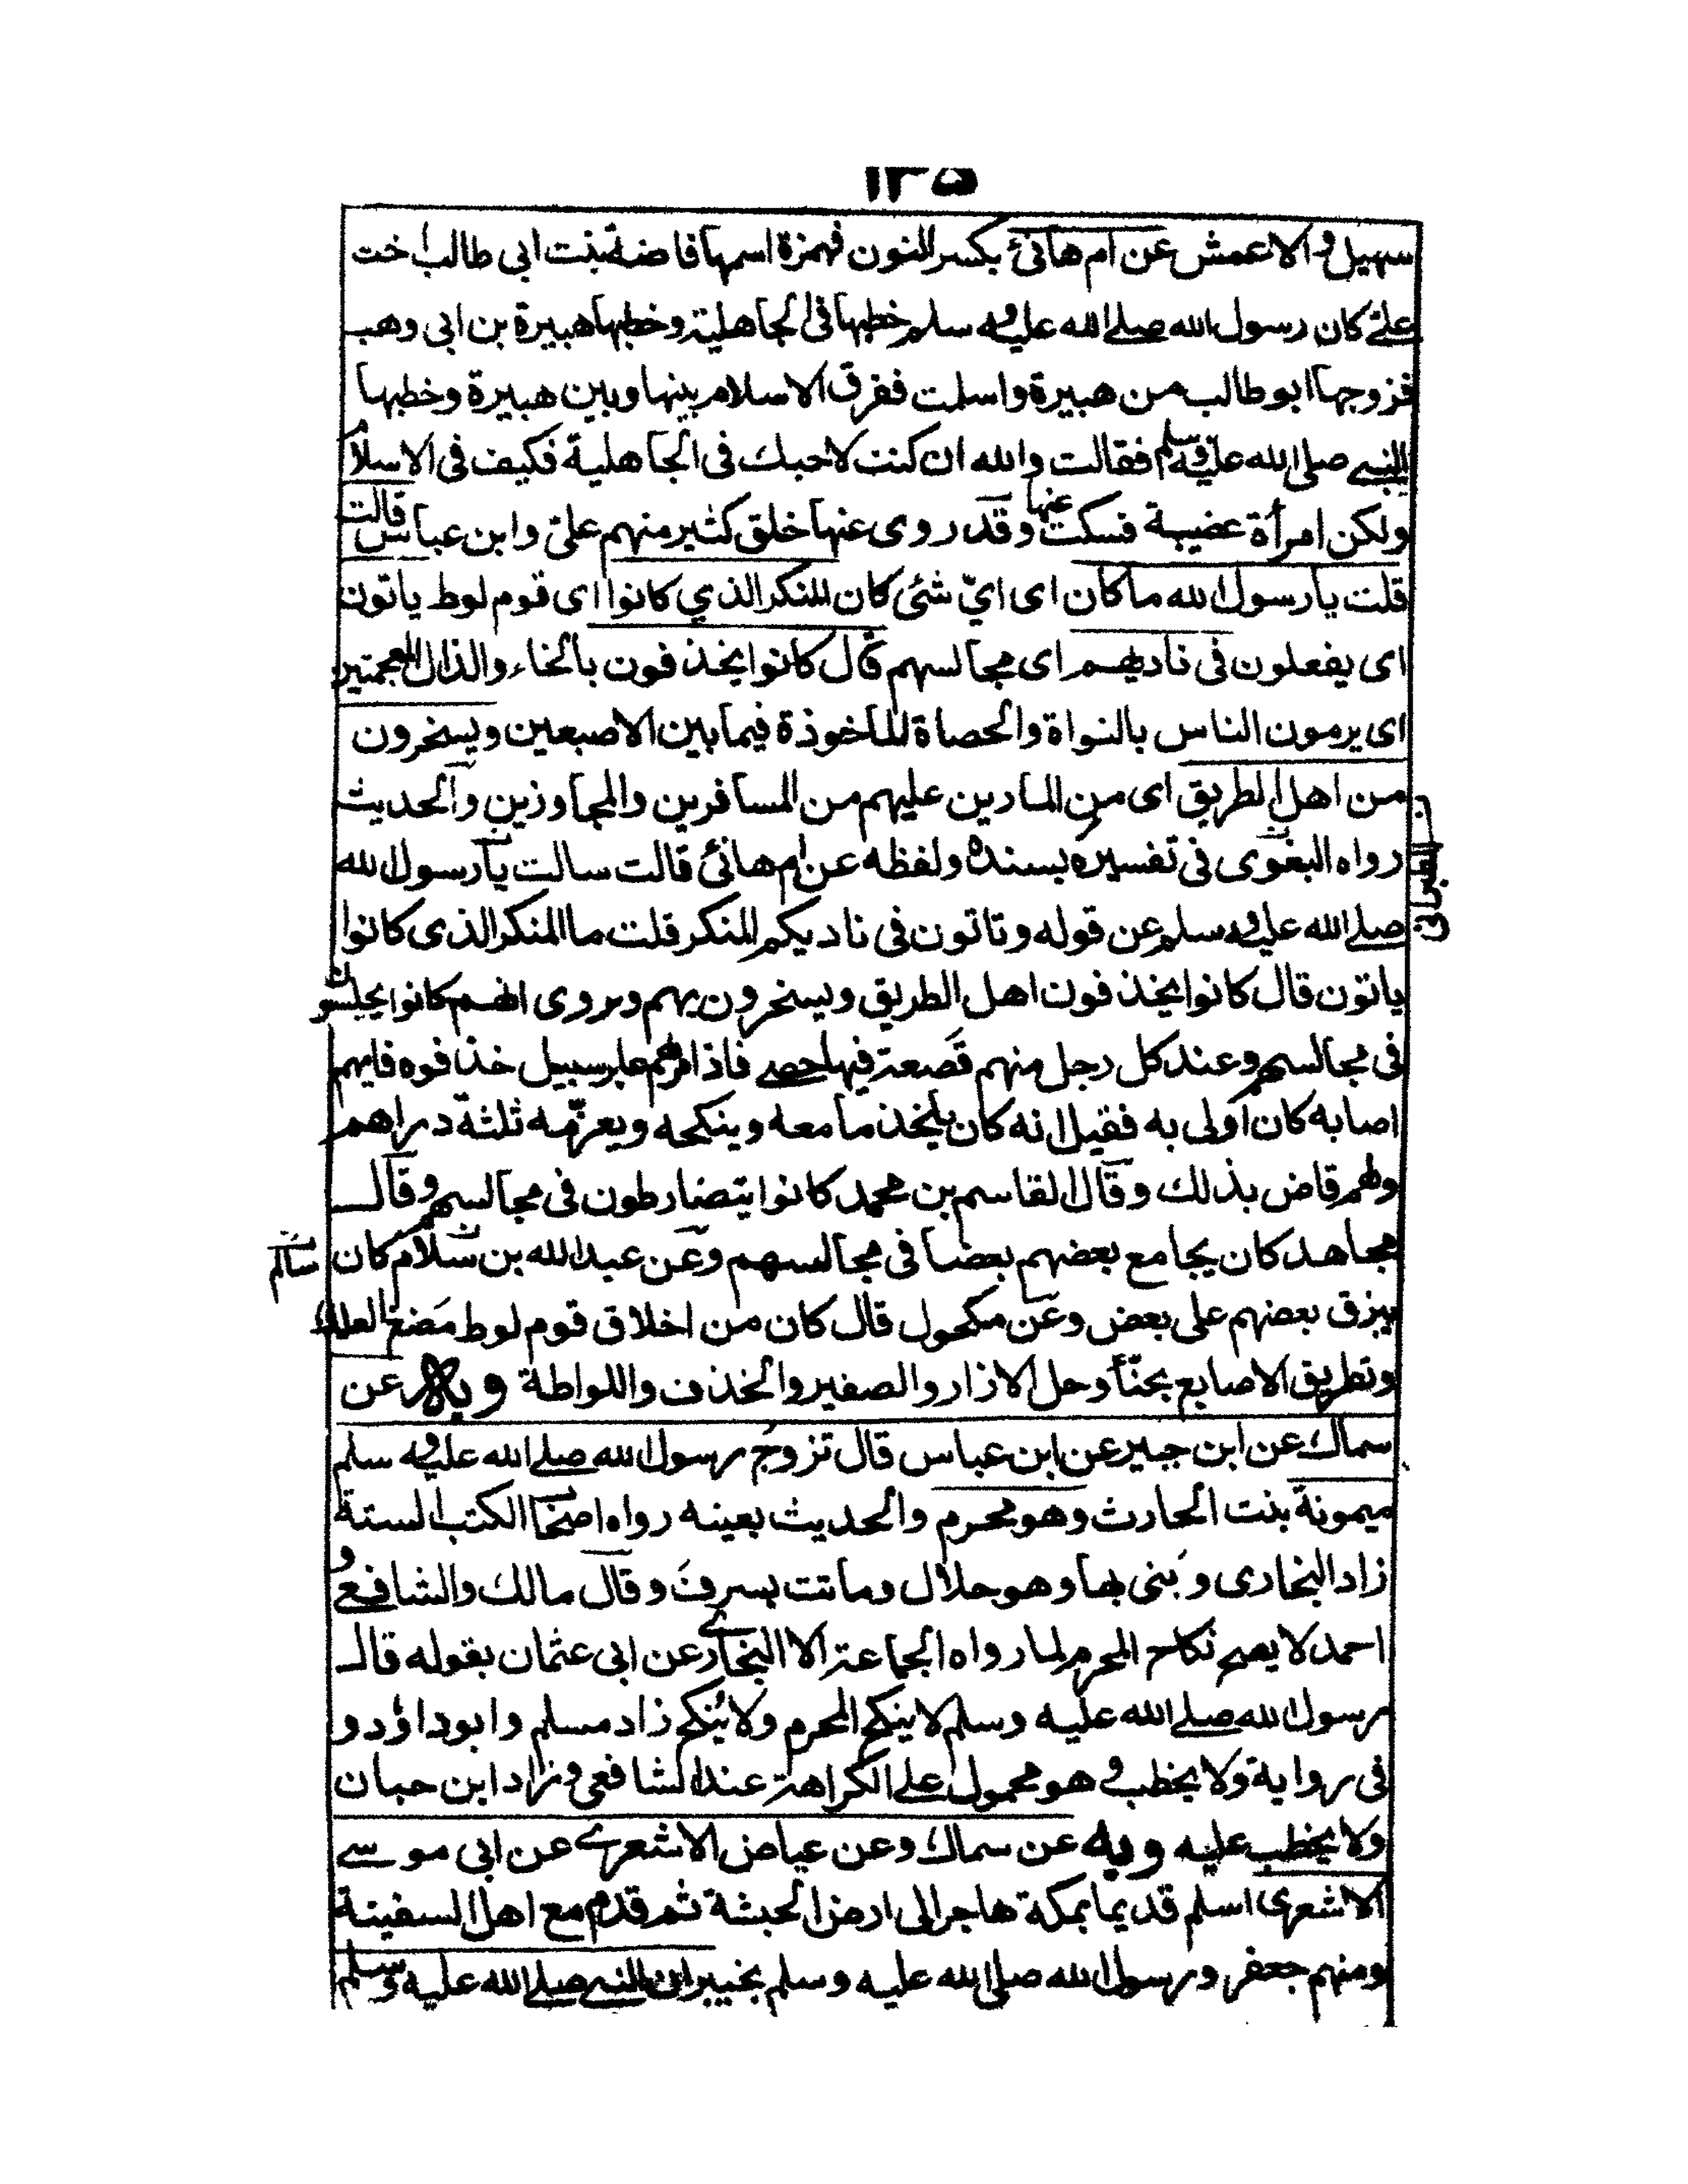 ١٢٥
سهيل والاعمش عن ام هانئ بكسر النون فهمزة اسمها فاختة بنت ابى طالب اخت
علىّ كان رسول الله صلى الله عليه وسلم خطبها فى الجاهلية وخطبها هبيرة بن ابى وهب
فزوجها ابو طالب من هبيرة واسلمت ففرق الاسلام بينها وبين هبيرة وخطبها
النبى صلى الله عليه وسلم فقالت والله ان كنت لاحبك فى الجاهلية فكيف فى الاسلام
ولكن امرأة عضيبة فسكت عنها وقد روى عنها خلق كثير منهم علىّ وابن عباس قالت
قلت يا رسول الله ما كان اى اىّ شئ كان المنكر الذي كانوا اى قوم لوط ياتون
اى يفعلون فى ناديهم اى مجالسهم قال كانوا يخذفون بالخاء والذال المعجمتين
اى يرمون الناس بالنواة والحصاة الماخوذة فيما بين الاصبعين ويسخرون
من اهل الطريق اى من المارين عليهم من المسافرين والمجاوزين والحديث
رواه البغوى فى تفسيره بسنده ولفظه عن ام هانئ قالت سالت يا رسول الله
صلى الله عليه وسلم عن قوله وتاتون فى ناديكم المنكر قلت ما المنكر الذى كانوا
ياتون قال كانوا يخذفون اهل الطريق ويسخرون بهم ويروى انهم كانوا يجلسون
فى مجالسهم وعند كل رجل منهم قَصعة فيها حصى فاذا مرّ بهم عابر سبيل خذفوه فايهم
اصابه كان اولى به فقيل انه كان ياخذ ما معه وينكحه ويغرّمه ثلثة دراهم
ولهم قاض بذلك وقال القاسم بن محمد كانوا يتضارطون فى مجالسهم وقال
مجاهد كان يجامع بعضهم بعضا فى مجالسهم وعن عبد الله بن سلام كان
يبزق بعضهم على بعض وعن مكحول قال كان من اخلاق قوم لوط مَضغ العلك
وتطريق الاصابع بحنّأ وحل الازار والصفير والخذف واللواطة وبه عن
سماك عن ابن جبير عن ابن عباس قال تزوج رسول الله صلى الله عليه وسلم
ميمونة بنت الحارث وهو محرم والحديث بعينه رواه اصحاب الكتب الستة
زاد البخارى وَبنى بها وهو حلال وماتت بسرفَ وقال مالك والشافعى و
احمد لا يصح نكاح المحرم لما رواه الجماعة الا البخارى عن ابى عثمان بقوله قال
رسول الله صلى الله عليه وسلم لا ينكح المحرم ولا يُنكح زاد مسلم وابو داؤد و
فى رواية ولا يخطب وهو محمول على الكراهة عند الشافعى وزاد ابن حبان
ولا يخطب عليه وبه عن سماك وعن عياض الاشعرى عن ابى موسى
الاشعرى اسلم قديما بمكة هاجر الى ارض الحبشة ثم قدم مع اهل السفينة
ومنهم جعفر ورسول الله صلى الله عليه وسلم بخيبر ان النبى صلى الله عليه وسلم